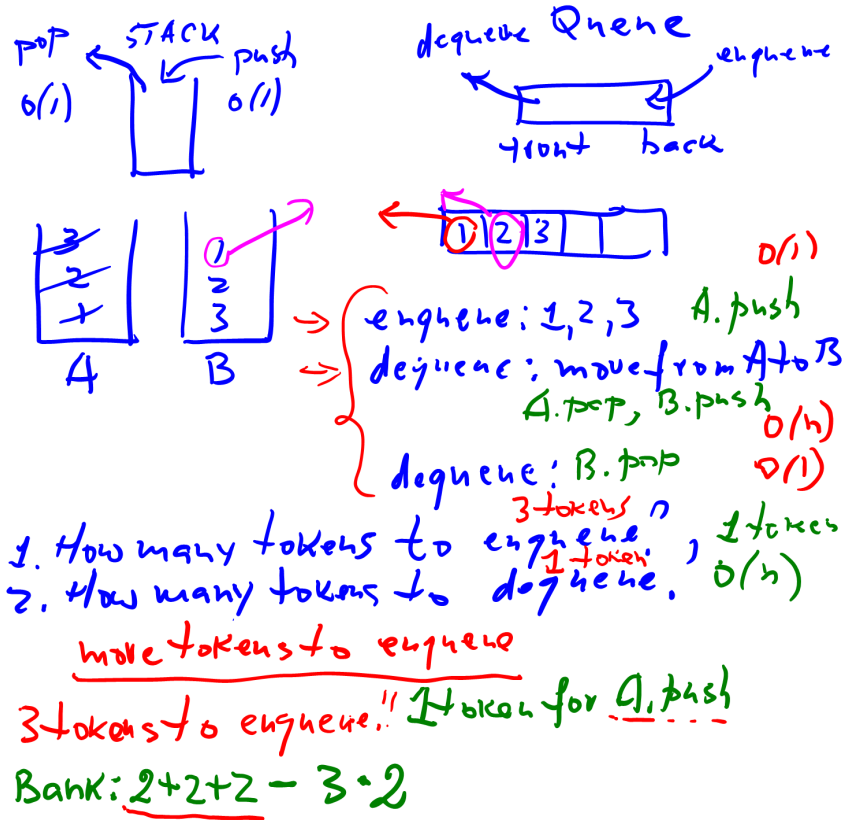 pop STACK push
O(1) O(1)
dequeue Queue enqueue
front back
3
2
1
A
1
2
3
B
1 2 3
O(1)
enqueue: 1, 2, 3 A.push
dequeue: move from A to B
A.pop, B.push
O(n)
dequeue: B.pop O(1)
3 tokens
1. How many tokens to enqueue? 1 token
1 token
2. How many tokens to dequeue? O(n)
move tokens to enqueue
3 tokens to enqueue!! 1 token for A.push
Bank: 2+2+2 - 3·2